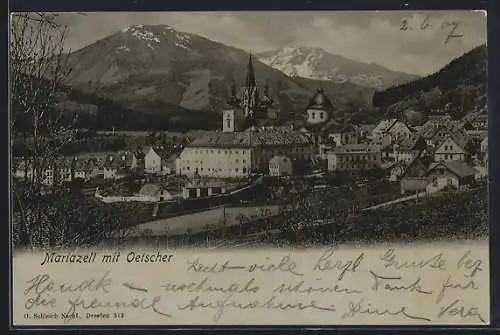 2. 6. 07
Mariazell mit Oetscher.
Recht viele herzl. Grüsse bez
Handk – nochmals schönen Dank für
die freundl. Aufnahme. Deine Vera
O. Schleich Nachf., Dresden 313